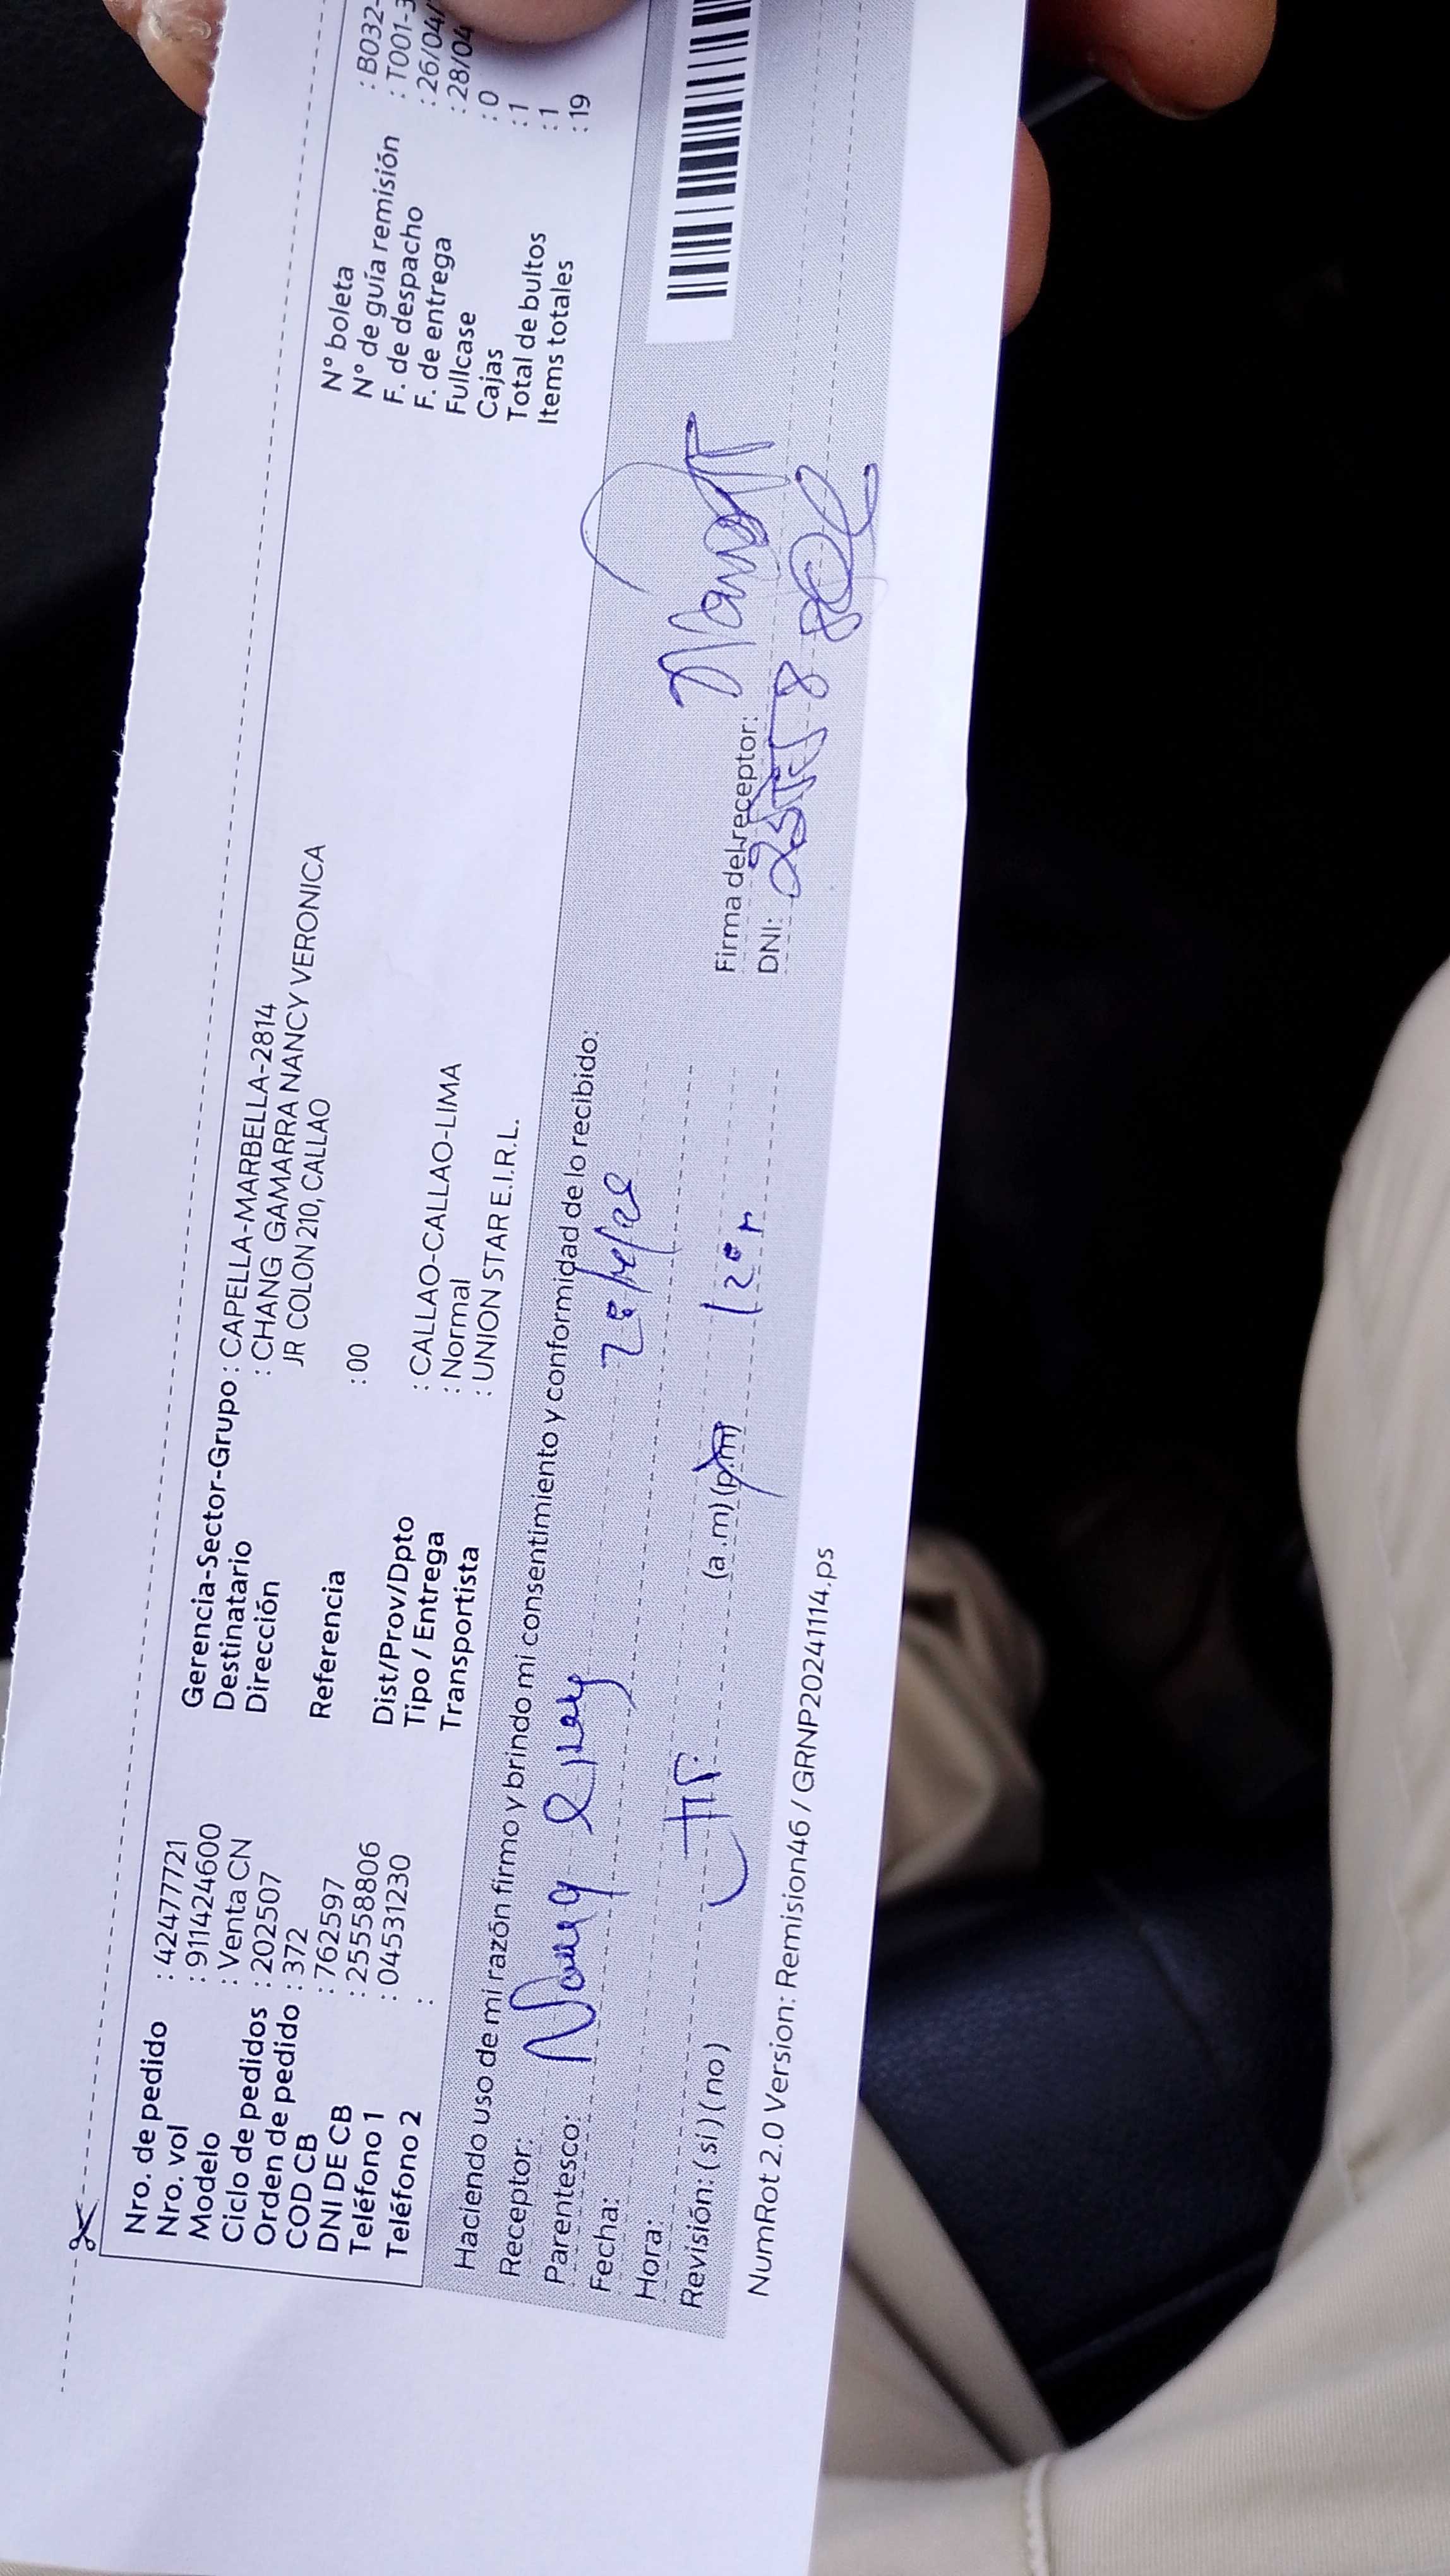 Nro. de pedido : 42477721
Nro. vol : 911424600
Modelo : Venta CN
Ciclo de pedidos : 202507
Orden de pedido : 372
COD CB : 762597
DNI DE CB : 25558806
Teléfono 1 : 04531230
Teléfono 2 :
Gerencia-Sector-Grupo : CAPELLA-MARBELLA-2814
Destinatario : CHANG GAMARRA NANCY VERONICA
Dirección JR COLON 210, CALLAO
Referencia : 00
Dist/Prov/Dpto : CALLAO-CALLAO-LIMA
Tipo / Entrega : Normal
Transportista : UNION STAR E.I.R.L.
N° boleta : B032-
N° de guía remisión : T001-3
F. de despacho : 26/04/
F. de entrega : 28/04
Fullcase : 0
Cajas : 1
Total de bultos : 1
Items totales : 19
Haciendo uso de mi razón firmo y brindo mi consentimiento y conformidad de lo recibido:
Receptor:
Parentesco:
Fecha:
Hora: (a.m) (p.m)
Revisión: (si) (no)
Firma del receptor:
DNI:
NumRot 2.0 Version: Remision46 / GRNP20241114.ps